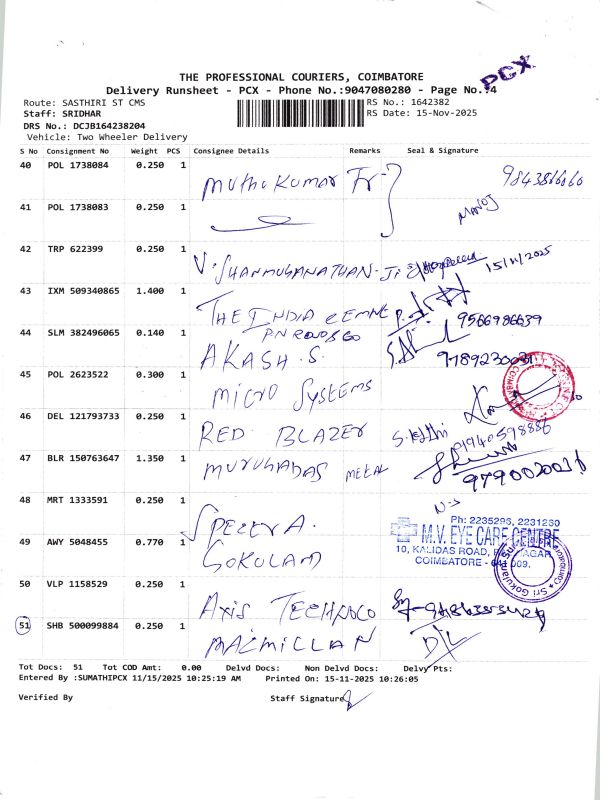 PCX
THE PROFESSIONAL COURIERS, COIMBATORE
Delivery Runsheet - PCX - Phone No.:9047080280 - Page No.:4
Route: SASTHIRI ST CMS RS No.: 1642382
Staff: SRIDHAR RS Date: 15-Nov-2025
DRS No.: DCJB164238204
Vehicle: Two Wheeler Delivery
S No Consignment No Weight PCS Consignee Details Remarks Seal & Signature
40 POL 1738084 0.250 1 Muthu Kumar Tr 9843866060
41 POL 1738083 0.250 1 MANOJ
42 TRP 622399 0.250 1 V. SHANMUGANATHAN 15/11/2025
43 IXM 509340865 1.400 1 THE INDIA CEMNE 9566986639
44 SLM 382496065 0.140 1 AKASH.S.
45 POL 2623522 0.300 1 MICRO SYSTEMS
46 DEL 121793733 0.250 1 RED BLAZER
47 BLR 150763647 1.350 1 MURUGADAS METAL
48 MRT 1333591 0.250 1
Ph: 2235296, 2231260
M.V. EYE CARE CENTRE
10, KALIDAS ROAD,
COIMBATORE
49 AWY 5048455 0.770 1 GOKULAM
50 VLP 1158529 0.250 1 AXIS TECHNOCO
51 SHB 500099884 0.250 1 MACMILLAN
Tot Docs: 51 Tot COD Amt: 0.00 Delvd Docs: Non Delvd Docs: Delvy Pts:
Entered By :SUMATHIPCX 11/15/2025 10:25:19 AM Printed On: 15-11-2025 10:26:05
Verified By Staff Signature